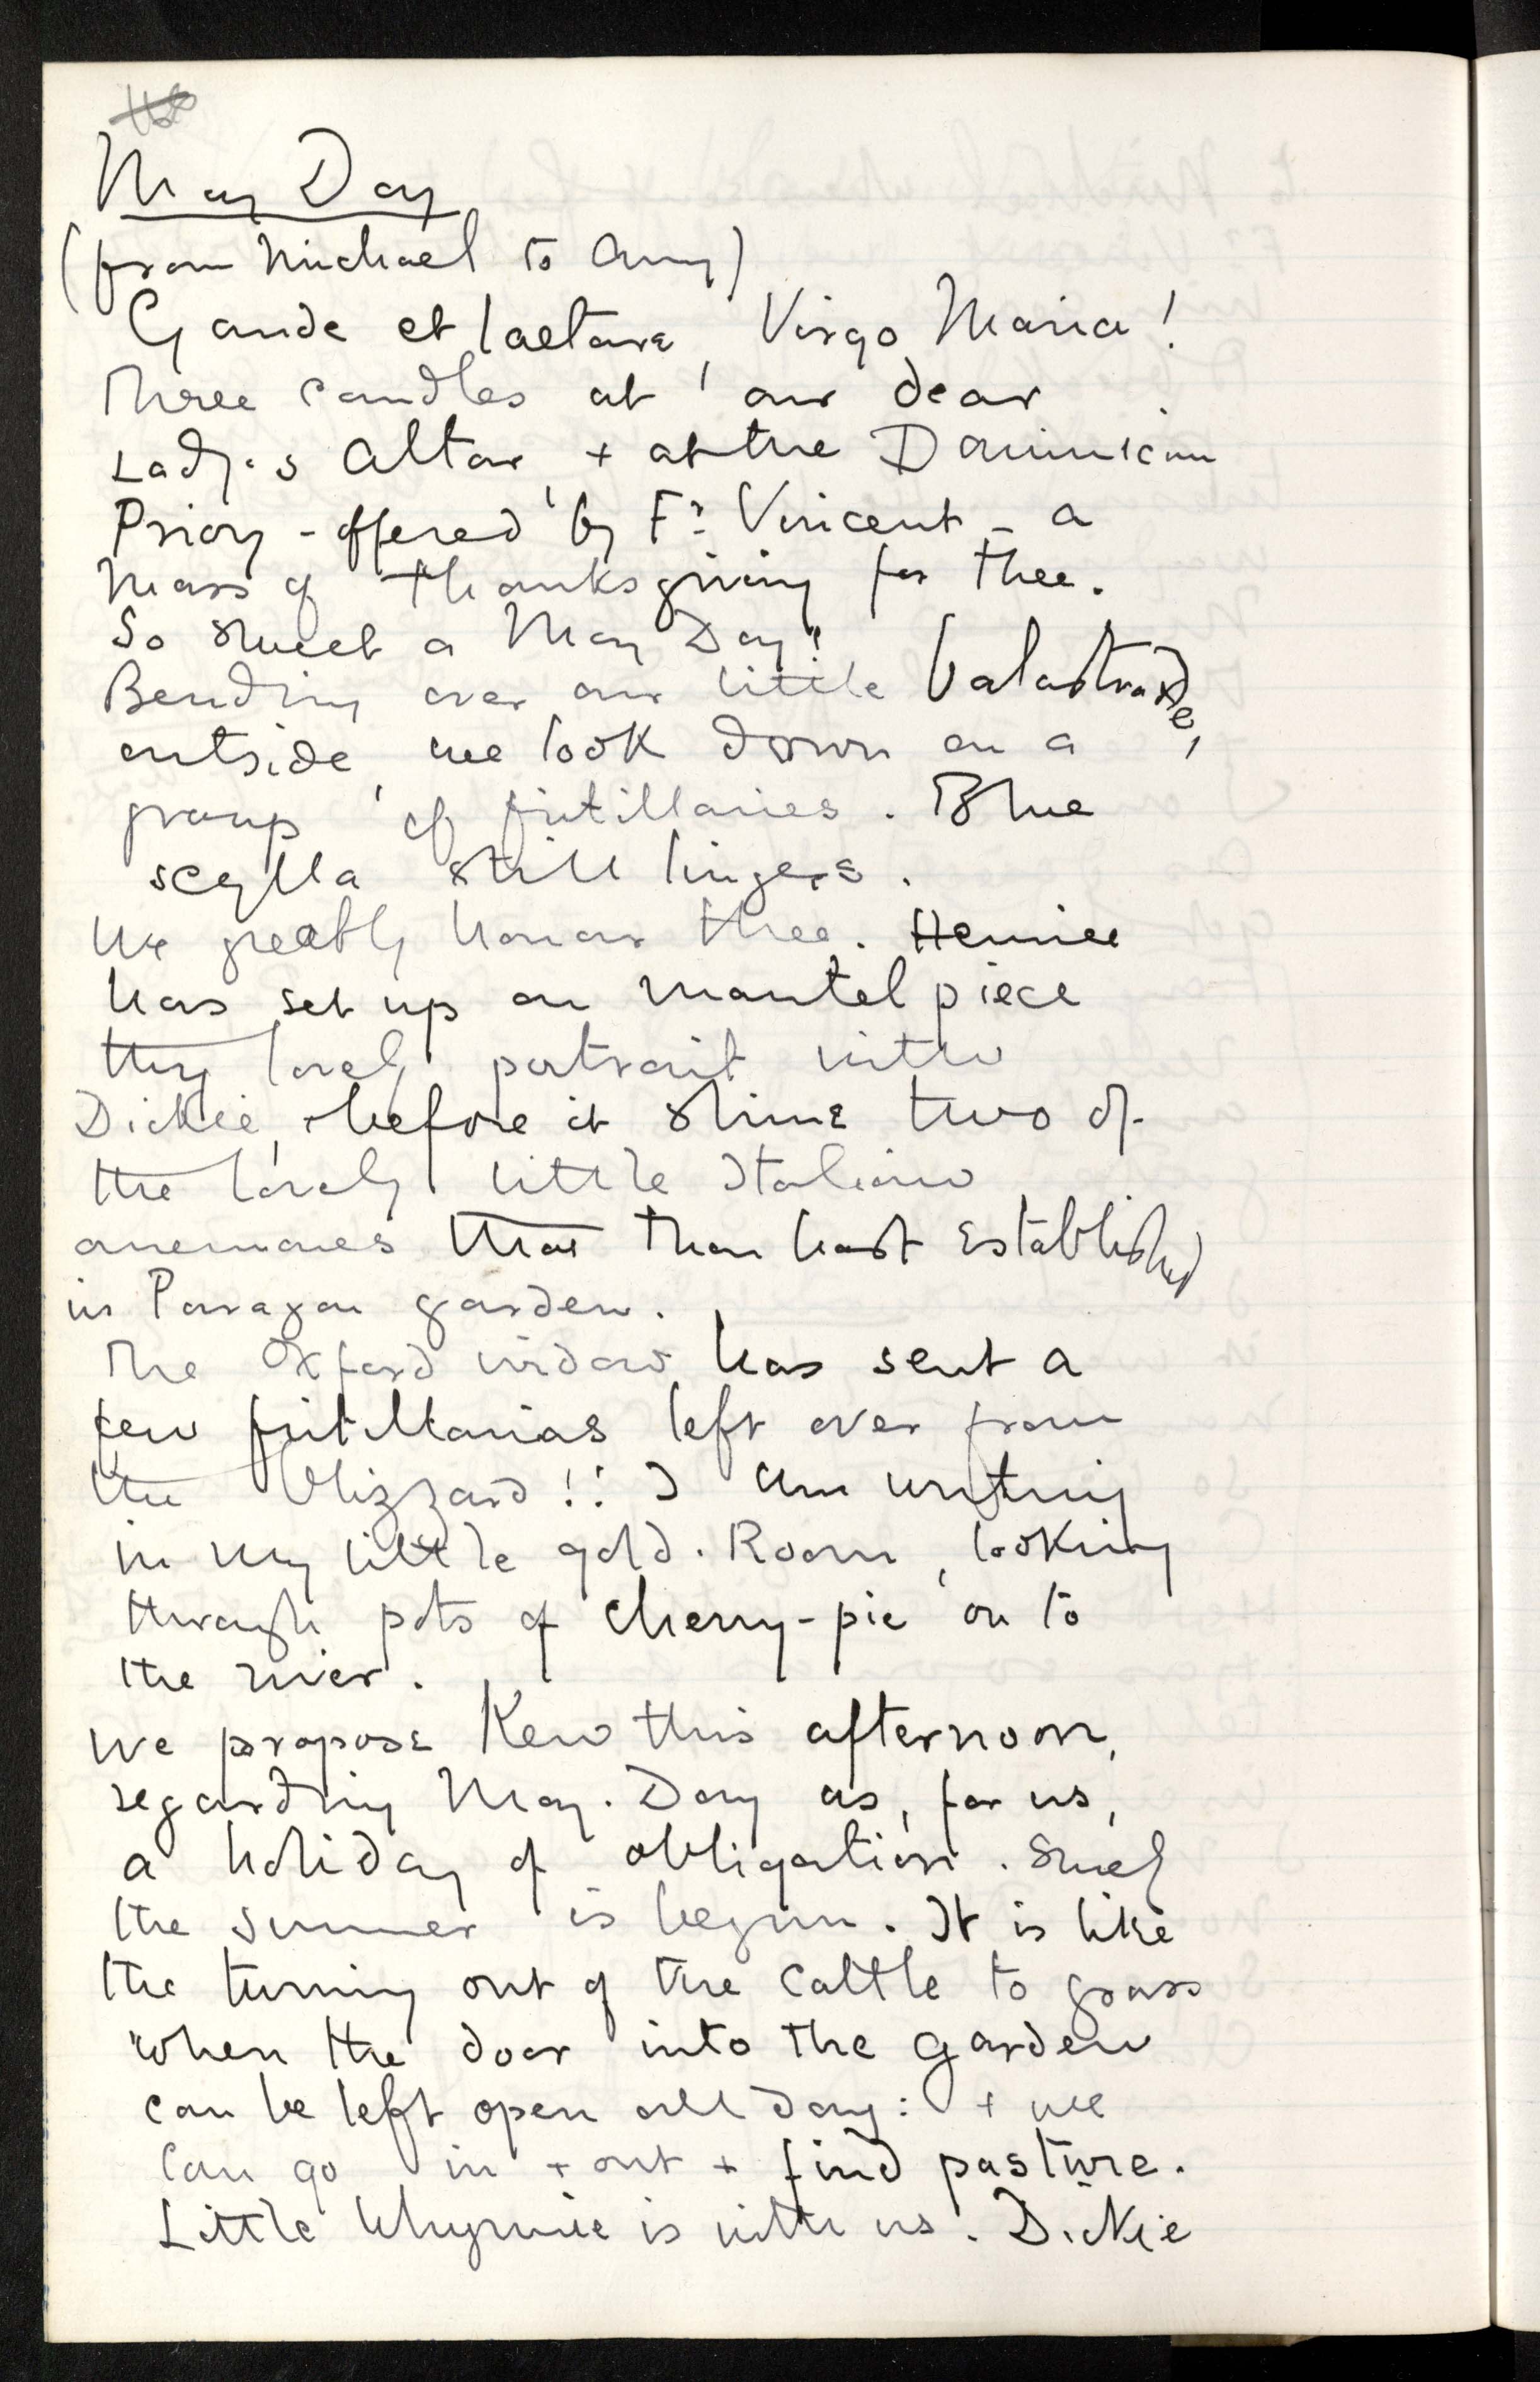 May Day
(from Michael to Amy)
Gaude et laetare, Virgo Maria!
Three candles at our dear
Lady's Altar, + at the Dominican
Priory - offered by Fr. Vincent - a
Mass of thanksgiving for thee.
So sweet a May Day!
Bending over our little balustrade,
outside, we look down on a
group of fritillaries. Blue
scylla still lingers.
We greatly honour thee. Hennie
has set up on mantel piece
thy lovely portrait with
Dickie, + before it shine two of
the lovely little Italian
anemones that thou hast established
in Paragon garden.
The Oxford widow has sent a
few fritillarias left over from
the blizzard!! I am writing
in my little gold. Room, looking
through pots of cherry-pie on to
the river.
We propose Kew this afternoon,
regarding May. Day as, for us,
a holiday of obligation.
the summer is begun. It is like
the turning out of the cattle to grass
when the door into the garden
can be left open all day: + we
can go in + out + find pasture.
Little Whymmie is with us. Dickie